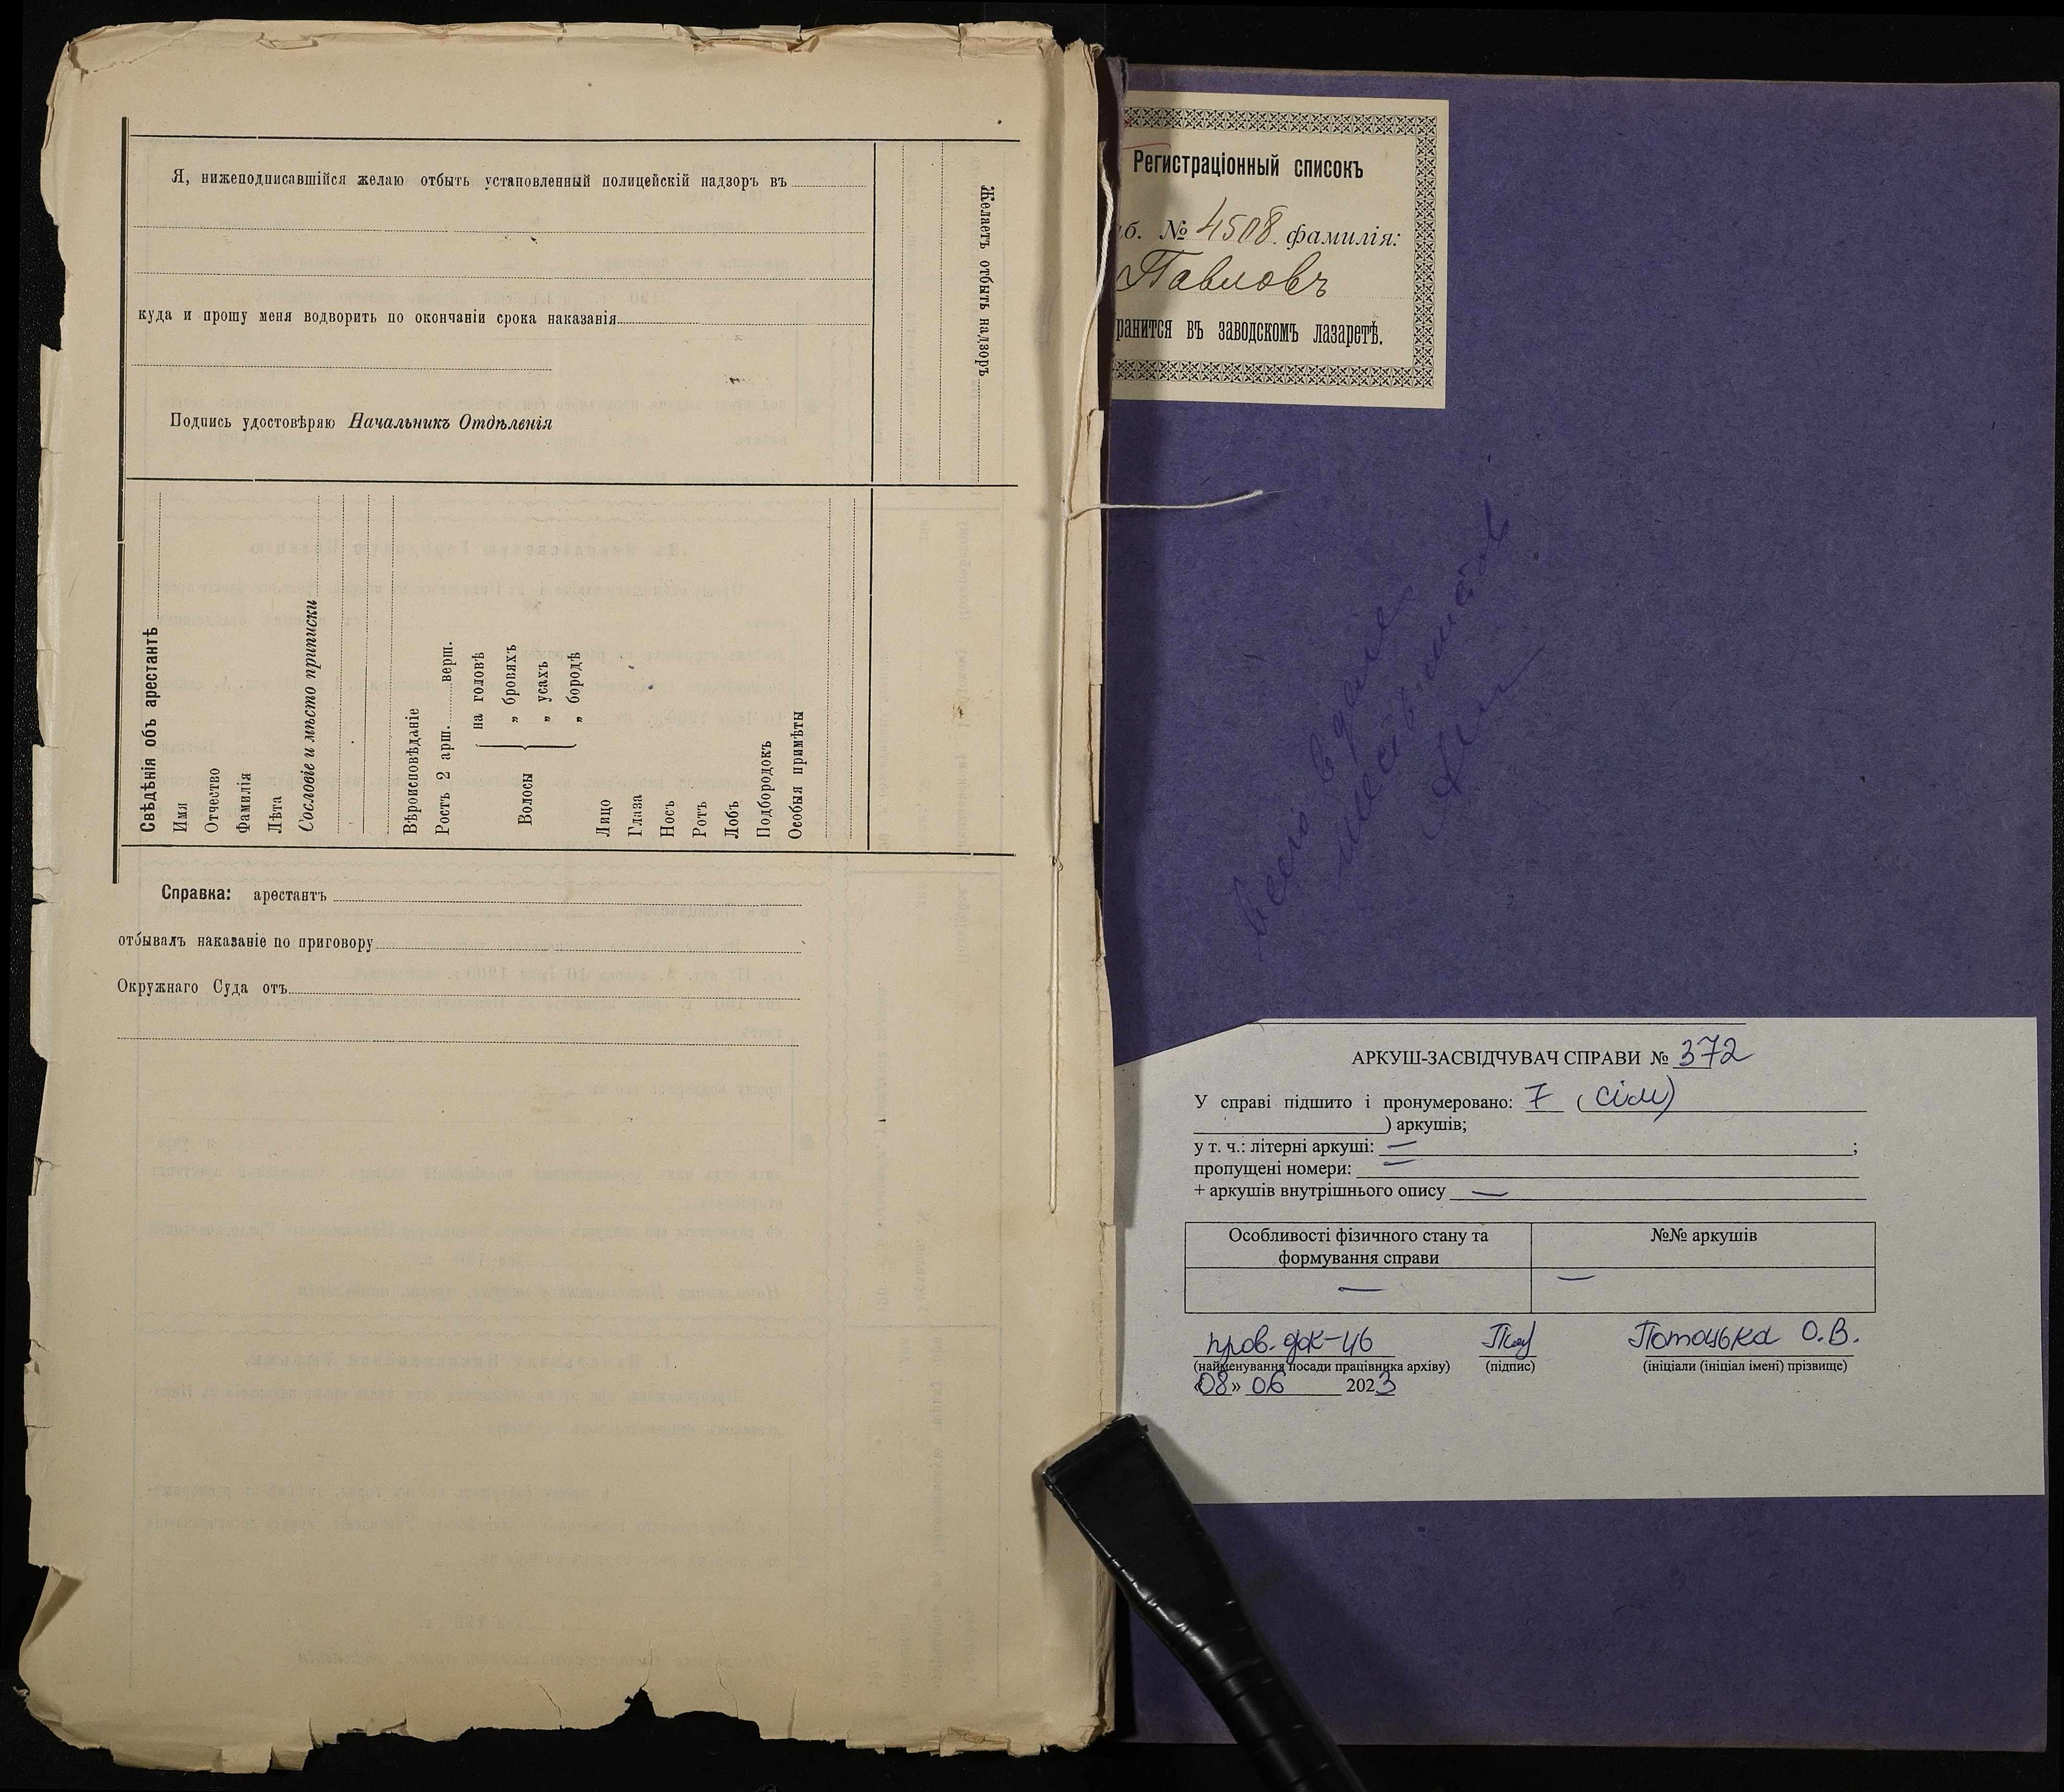 Я, нижеподписавшійся желаю отбыть установленный полицейскій надзоръ въ
куда и прошу меня водворить по окончаніи срока наказанія
Подпись удостовѣряю Начальникъ Отдѣленія
Желаетъ отбыть надзоръ
Свѣдѣнія объ арестантѣ
Имя
Отчество
Фамилія
Лѣта
Сословіе и мѣсто приписки
Вѣроисповѣданіе
Ростъ 2 арш. верш.
Волосы
на головѣ
„ бровяхъ
„ усахъ
„ бородѣ
Лицо
Глаза
Носъ
Ротъ
Лобъ
Подбородокъ
Особыя примѣты
Справка: арестантъ
отбывалъ наказаніе по приговору
Окружнаго Суда отъ
Регистраціонный списокъ
аб. № 4508. фамилія:
Павловъ
ранится въ заводскомъ лазаретѣ.
Всего в деле
шесть листов
АРКУШ-ЗАСВІДЧУВАЧ СПРАВИ № 372
У справі підшито і пронумеровано: 7 ( сім)
) аркушів;
у т. ч.: літерні аркуші: — ;
пропущені номери: —
+ аркушів внутрішнього опису —
Особливості фізичного стану та формування справи
№№ аркушів
—
—
пров. док-ів
Потоцька О.В.
(найменування посади працівника архіву) (підпис) (ініціали (ініціал імені) прізвище)
«08» 06 2023